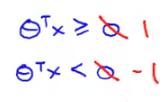 θᵀx ≥ 0 1
θᵀx < 0 -1